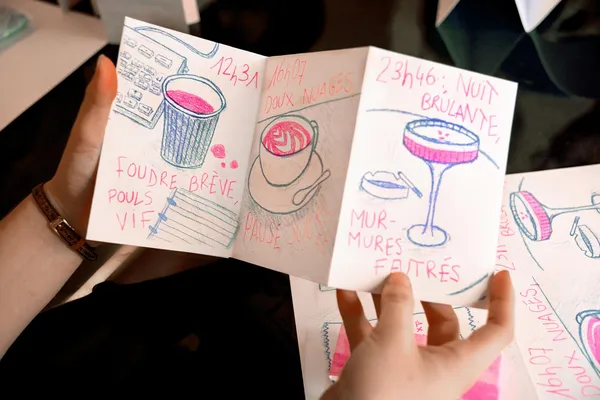 12h31
FOUDRE BRÈVE,
POULS
VIF
16h07
DOUX NUAGES
PAUSE
23h46: NUIT
BRÛLANTE,
MUR-
MURES
FEUTRÉS
DOUX NUAGES
16h07